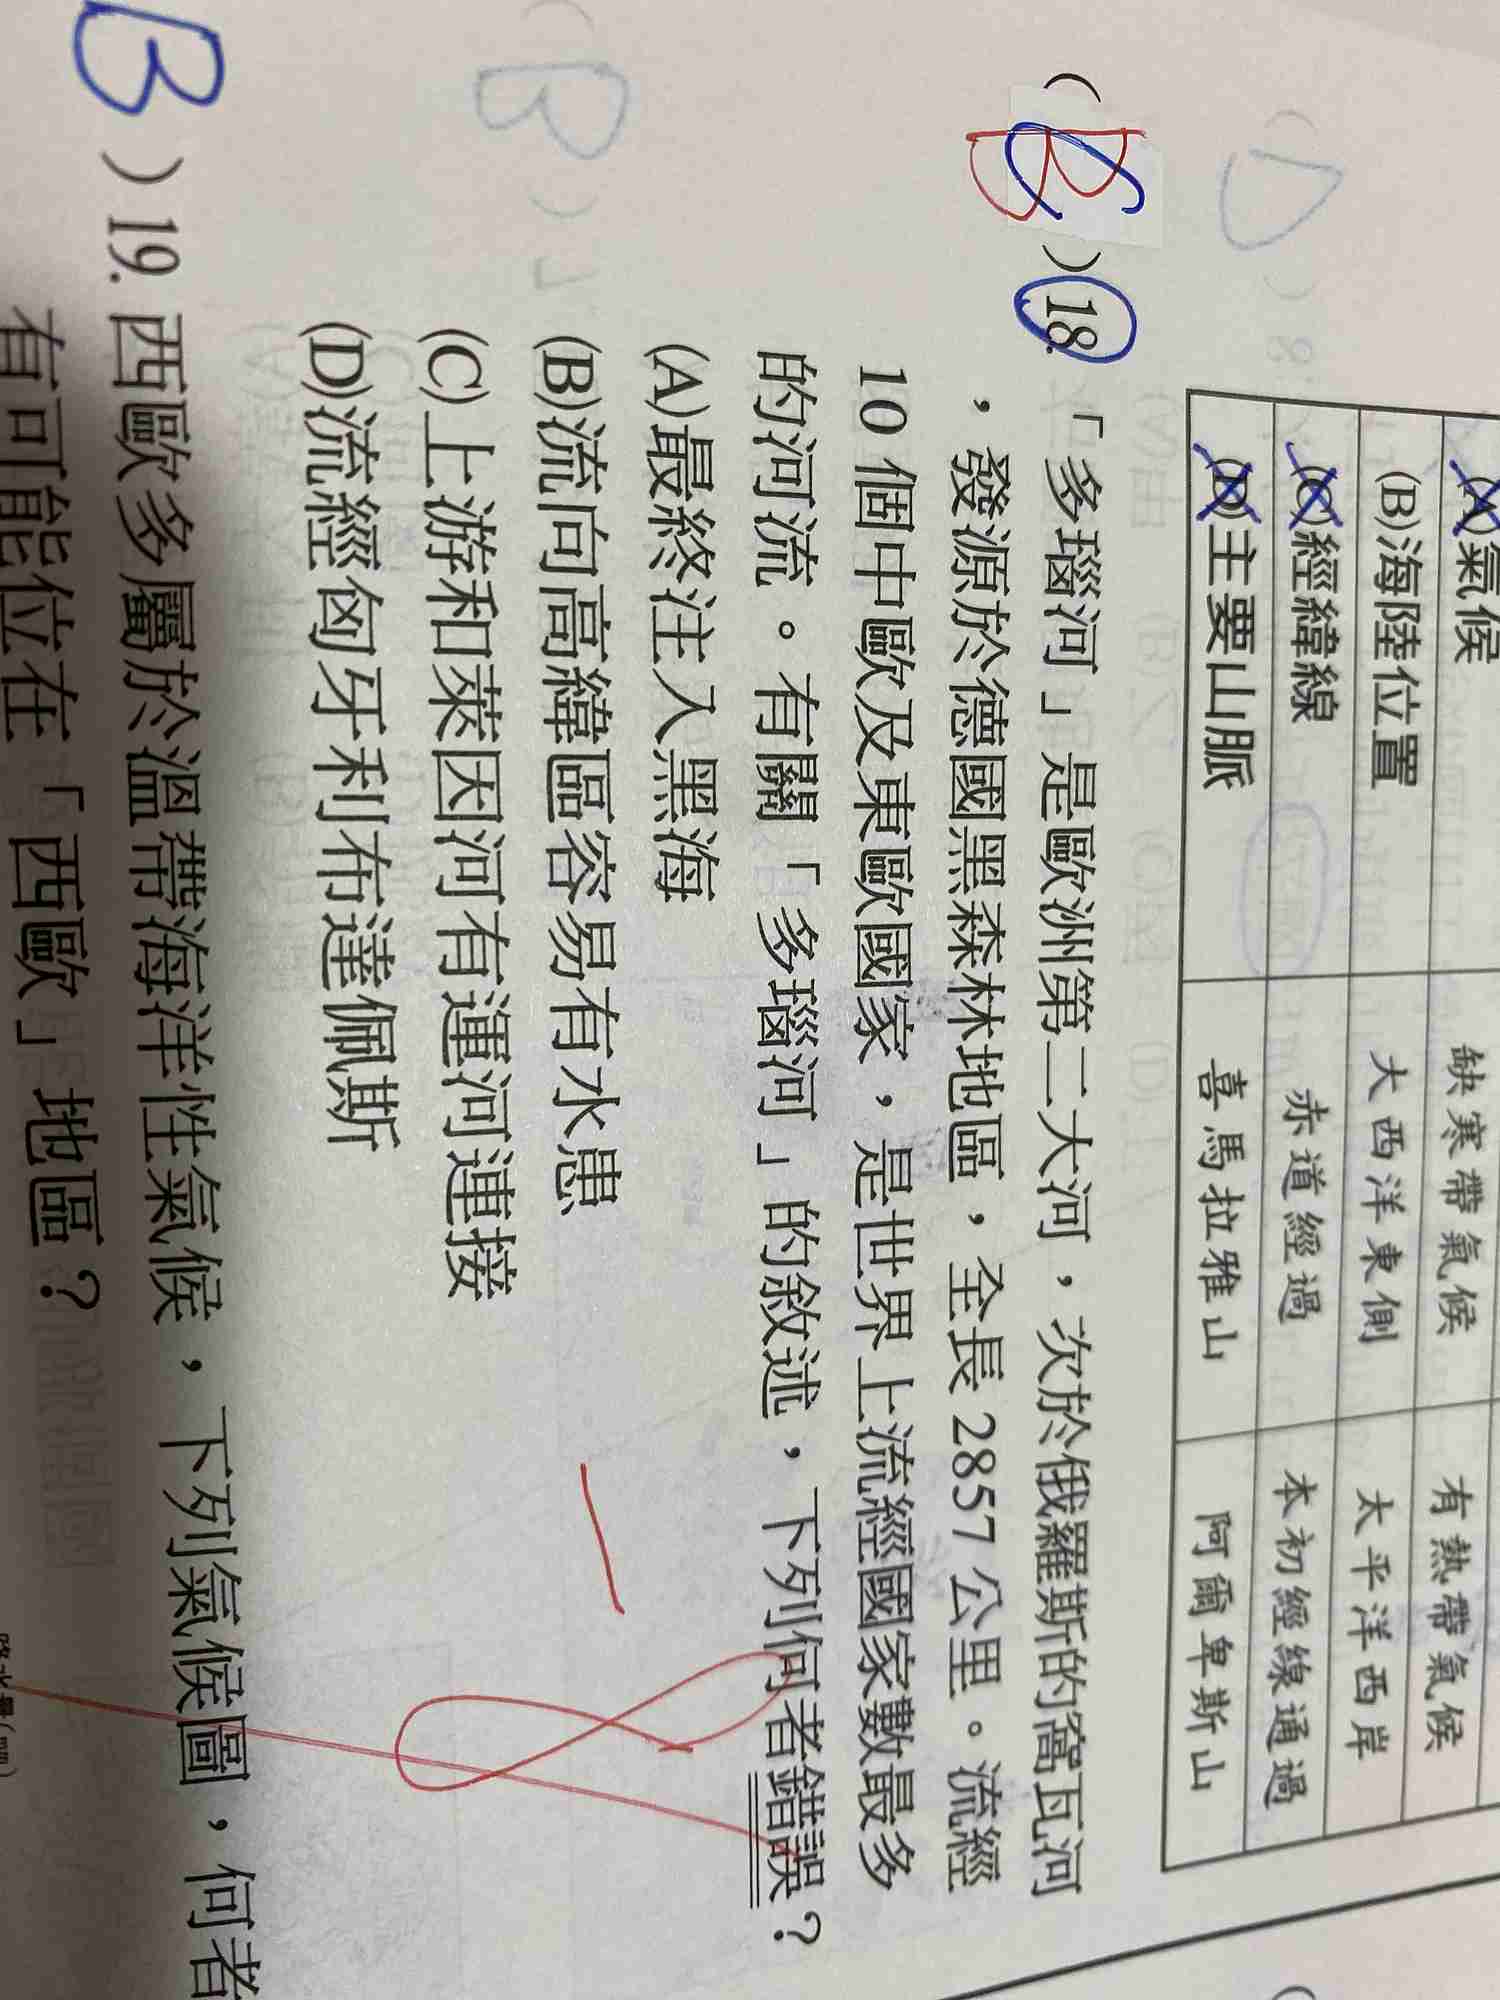 (A)氣候 缺寒帶氣候 有熱帶氣候
(B)海陸位置 大西洋東側 太平洋西岸
(C)經緯線 赤道經過 本初經線通過
(D)主要山脈 喜馬拉雅山 阿爾卑斯山
( B )18.「多瑙河」是歐洲第二大河，次於俄羅斯的窩瓦河
，發源於德國黑森林地區，全長 2857 公里。流經
10 個中歐及東歐國家，是世界上流經國家數最多
的河流。有關「多瑙河」的敘述，下列何者錯誤？
(A)最終注入黑海
(B)流向高緯區容易有水患
(C)上游和萊因河有運河連接
(D)流經匈牙利布達佩斯
B )19. 西歐多屬於溫帶海洋性氣候，下列氣候圖，何者
有可能位在「西歐」地區？